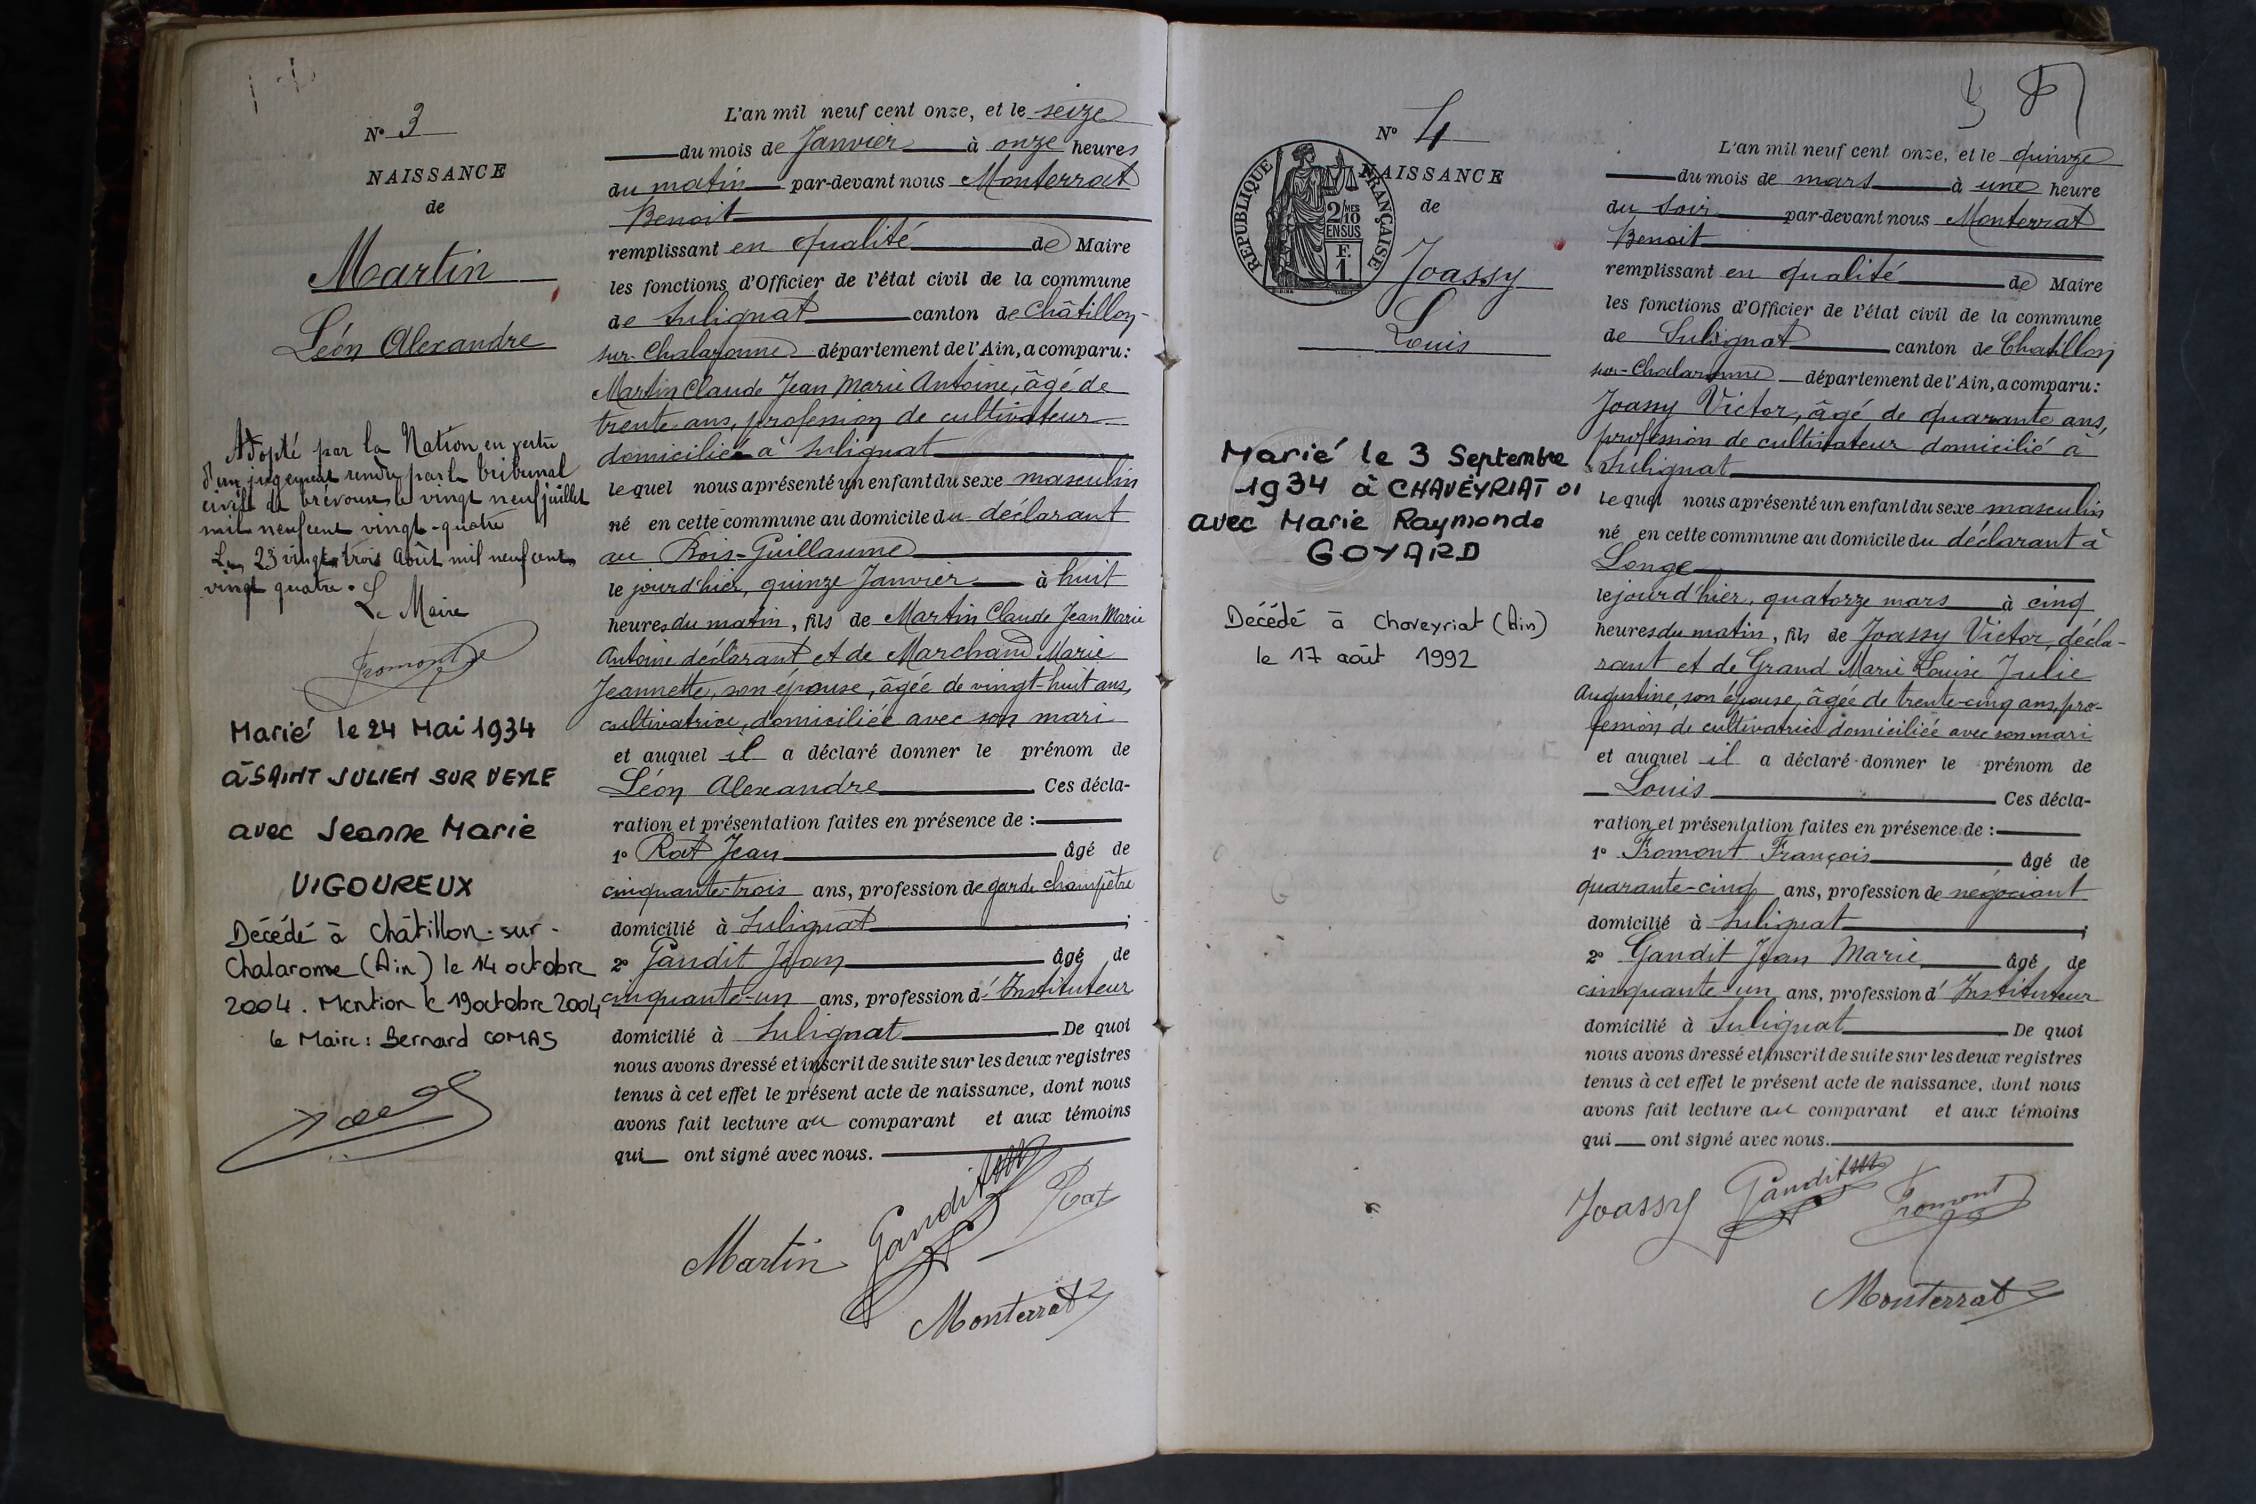 N° 3
NAISSANCE
de
Martin
Léon Alexandre
Adopté par la Nation en vertu
d'un jugement rendu par le tribunal
civil de Trévoux le vingt neuf juillet
mil neuf cent vingt-quatre
Le 23 vingt trois Août mil neuf cent
vingt quatre.
Le Maire
Fromont
Marié le 24 Mai 1934
à SAINT JULIEN SUR VEYLE
avec Jeanne Marie
VIGOUREUX
Décédé à Châtillon-sur-
Chalaronne (Ain) le 14 octobre
2004. Mention le 19 octobre 2004
le Maire: Bernard COMAS
L'an mil neuf cent onze, et le seize
du mois de Janvier à onze heures
du matin par-devant nous Monterrat
Benoit
remplissant en qualité de Maire
les fonctions d'Officier de l'état civil de la commune
de Sulignat canton de Châtillon-
sur-Chalaronne département de l'Ain, a comparu:
Martin Claude Jean Marie Antoine, âgé de
trente ans, profession de cultivateur
domicilié à Sulignat
lequel nous a présenté un enfant du sexe masculin
né en cette commune au domicile du déclarant
au Bois-Guillaume
le jour d'hier, quinze Janvier à huit
heures du matin, fils de Martin Claude Jean Marie
Antoine déclarant et de Marchand Marie
Jeannette, son épouse, âgée de vingt-huit ans,
cultivatrice, domiciliée avec son mari
et auquel il a déclaré donner le prénom de
Léon Alexandre Ces décla-
ration et présentation faites en présence de :
1° Rat Jean âgé de
cinquante-trois ans, profession de garde champêtre
domicilié à Sulignat ;
2° Gandit Jean âgé de
cinquante-un ans, profession d'Instituteur
domicilié à Sulignat De quoi
nous avons dressé et inscrit de suite sur les deux registres
tenus à cet effet le présent acte de naissance, dont nous
avons fait lecture au comparant et aux témoins
qui ont signé avec nous.
Martin Gandit Rat
Monterrat
N° 4
NAISSANCE
de
RÉPUBLIQUE FRANÇAISE
2/10 MES
EN SUS
F.
1
Joassy
Louis
Marié le 3 Septembre
1934 à CHAVEYRIAT 01
avec Marie Raymonde
GOYARD
Décédé à Chaveyriat (Ain)
le 17 août 1992
L'an mil neuf cent onze, et le quinze
du mois de mars à une heure
du soir par-devant nous Monterrat
Benoit
remplissant en qualité de Maire
les fonctions d'Officier de l'état civil de la commune
de Sulignat canton de Chatillon
sur-Chalaronne département de l'Ain, a comparu:
Joassy Victor, âgé de quarante ans,
profession de cultivateur domicilié à
Sulignat
lequel nous a présenté un enfant du sexe masculin
né en cette commune au domicile du déclarant à
Longe
le jour d'hier, quatorze mars à cinq
heures du matin, fils de Joassy Victor, décla-
rant et de Grand Marie Louise Julie
Augustine, son épouse, âgée de trente-cinq ans, pro-
fession de cultivatrice domiciliée avec son mari
et auquel il a déclaré donner le prénom de
Louis Ces décla-
ration et présentation faites en présence de :
1° Fromont François âgé de
quarante-cinq ans, profession de négociant
domicilié à Sulignat ;
2° Gandit Jean Marie âgé de
cinquante-un ans, profession d'Instituteur
domicilié à Sulignat De quoi
nous avons dressé et inscrit de suite sur les deux registres
tenus à cet effet le présent acte de naissance, dont nous
avons fait lecture au comparant et aux témoins
qui ont signé avec nous.
Joassy Gandit Fromont
Monterrat